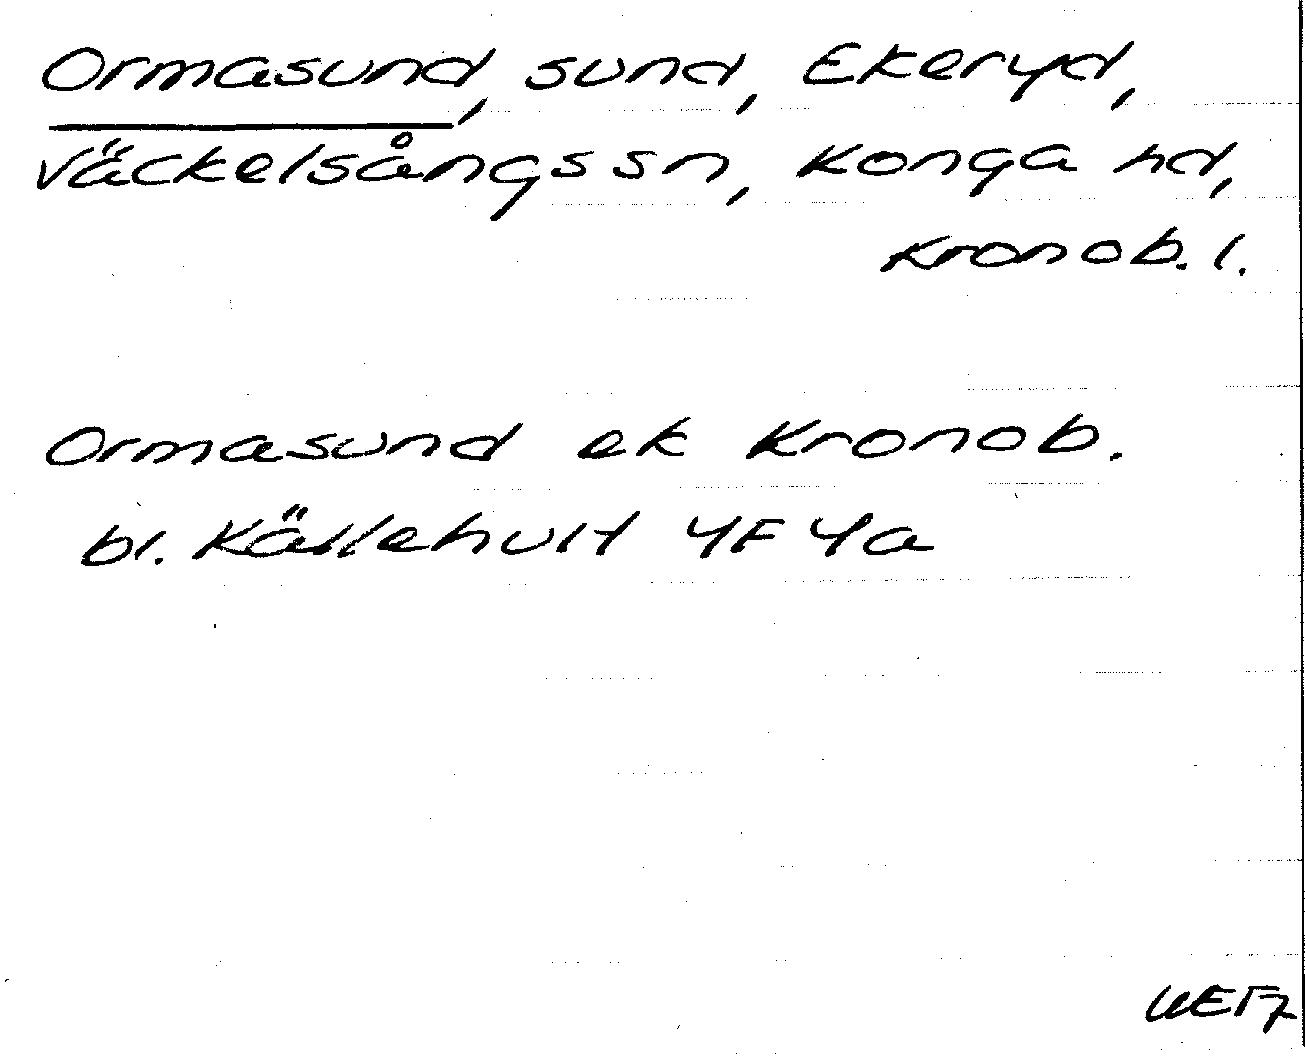 Ormasund, sund, Ekeryd,
Väckelsångs sn, Konga hd,
Kronob. l.
Ormasund ek Kronob.
bl. Källehult 4F4a